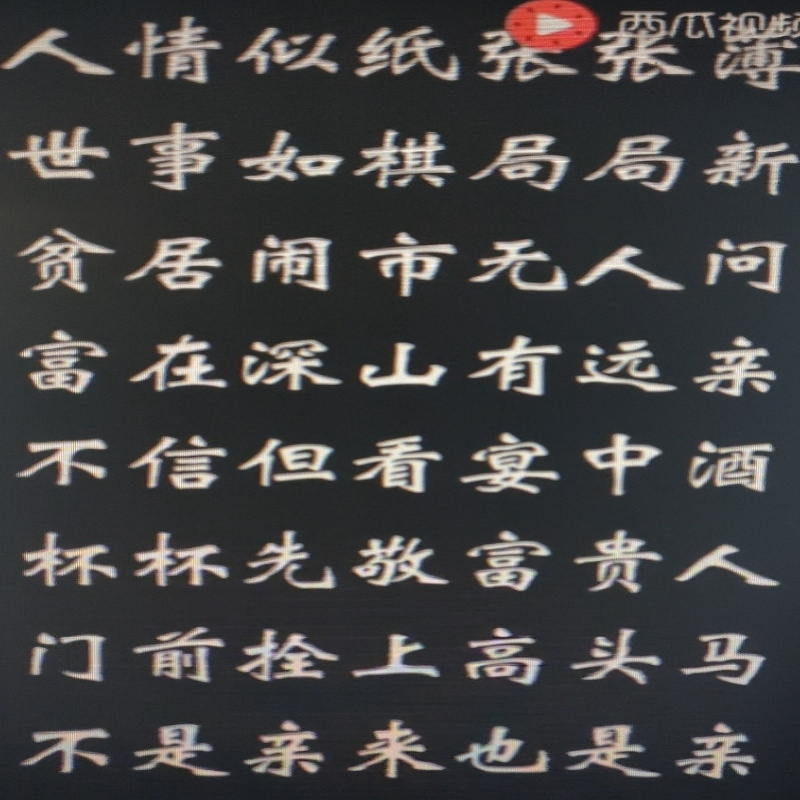 西瓜视频
人情似纸张张薄
世事如棋局局新
贫居闹市无人问
富在深山有远亲
不信但看宴中酒
杯杯先敬富贵人
门前拴上高头马
不是亲来也是亲